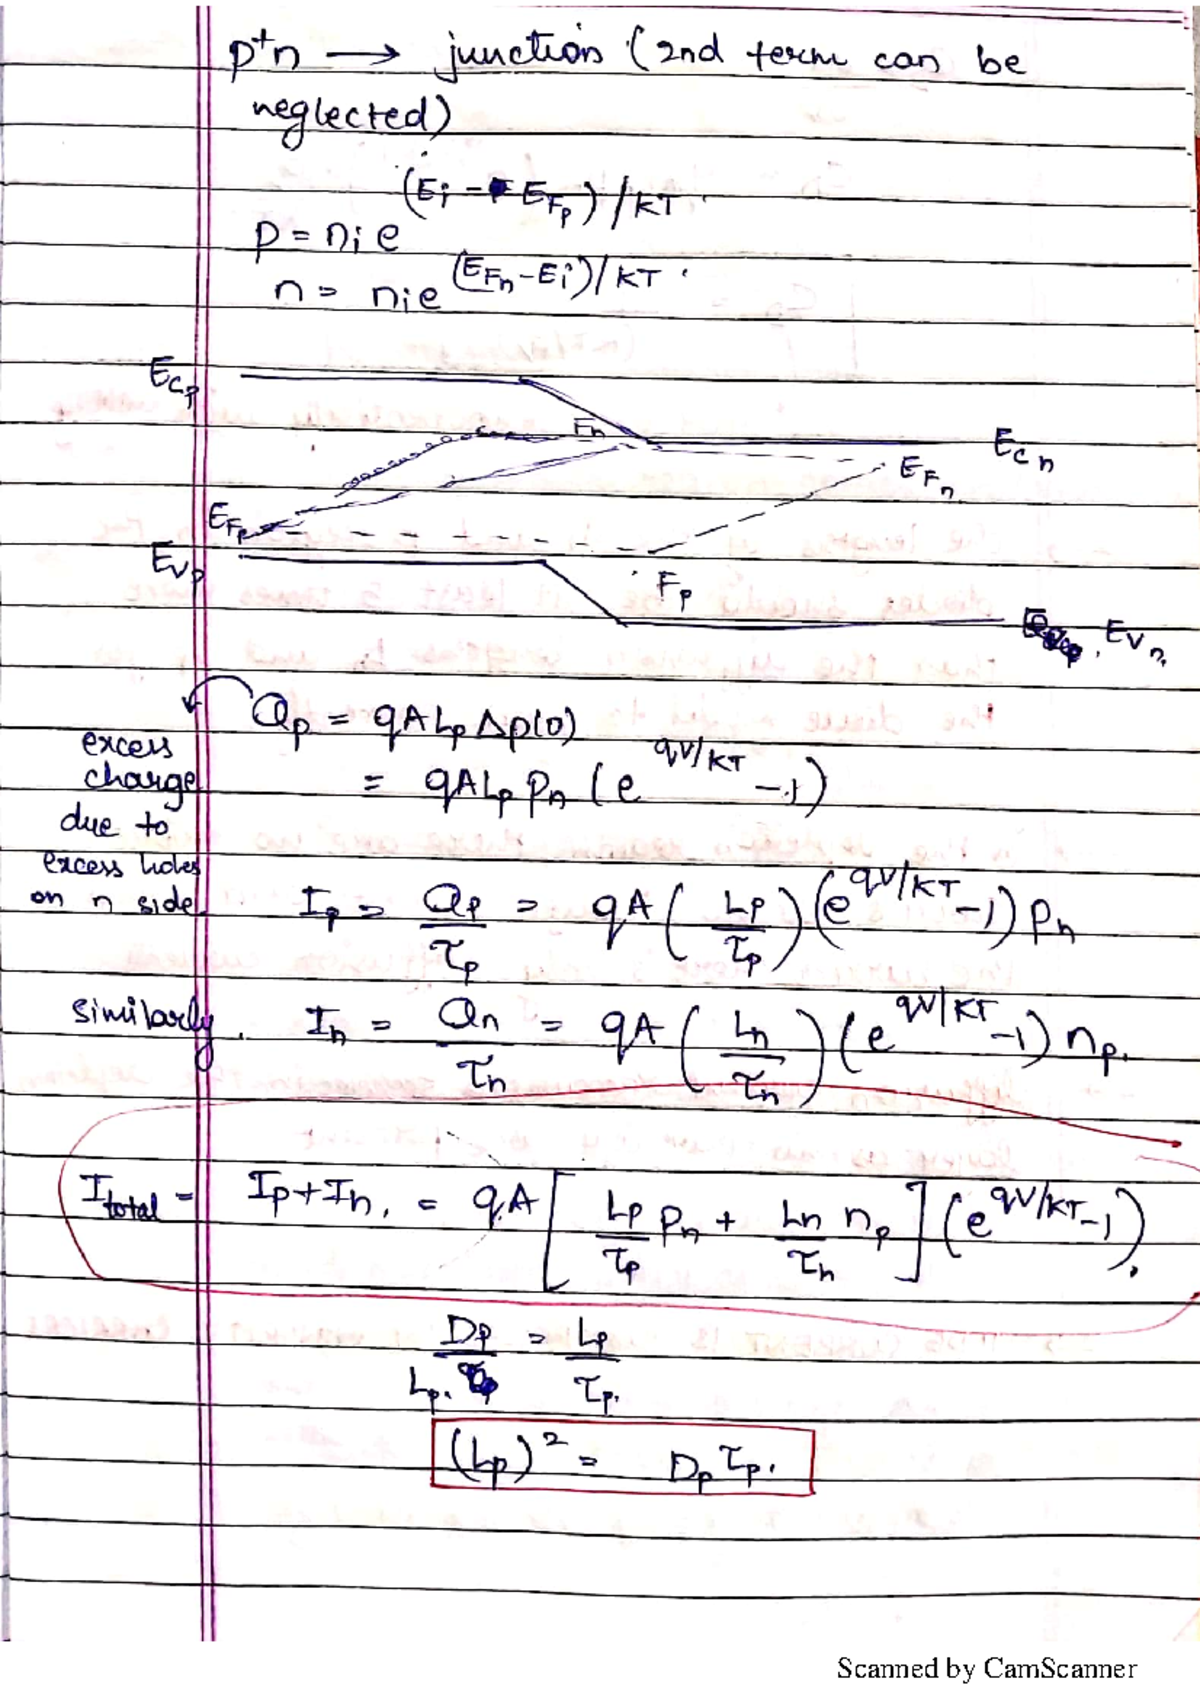 p⁺n → junction (2nd term can be
neglected)
p = nᵢ e^(Eᵢ - E_Fp)/KT
n = nᵢ e^(E_Fn - Eᵢ)/KT
E_Cp
Fn
E_Cn
E_Fn
E_Fp
E_Vp
Fp
E_Vn
Qp = qALp Δp(0)
= qALp pn (e^qV/KT -1)
excess
charge
due to
excess holes
on n side
Ip = Qp/τp = qA (Lp/τp) (e^qV/KT -1) pn
similarly. In = Qn/τn = qA (Ln/τn) (e^qV/KT -1) np.
I_total = Ip + In, = qA [Lp/τp pn + Ln/τn np] (e^qV/KT -1).
Dp/Lp. = Lp/τp.
(Lp)² = Dp τp.
Scanned by CamScanner